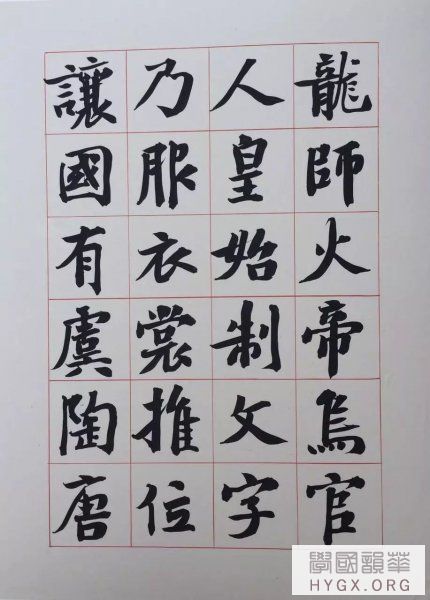 龍師火帝鳥官
人皇始制文字
乃服衣裳推位
讓國有虞陶唐
華韻國學
HYGX.ORG